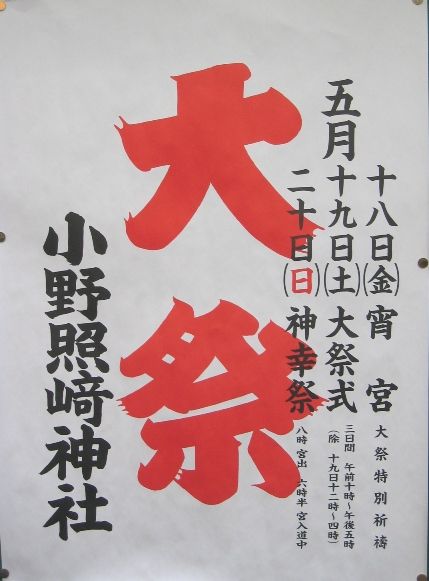 五月
十八日(金)宵宮
十九日(土)大祭式
二十日(日)神幸祭
大祭特別祈祷
三日間 午前十時~午後五時
(除 十九日十二時~四時)
八時 宮出 六時半 宮入道中
大祭
小野照﨑神社